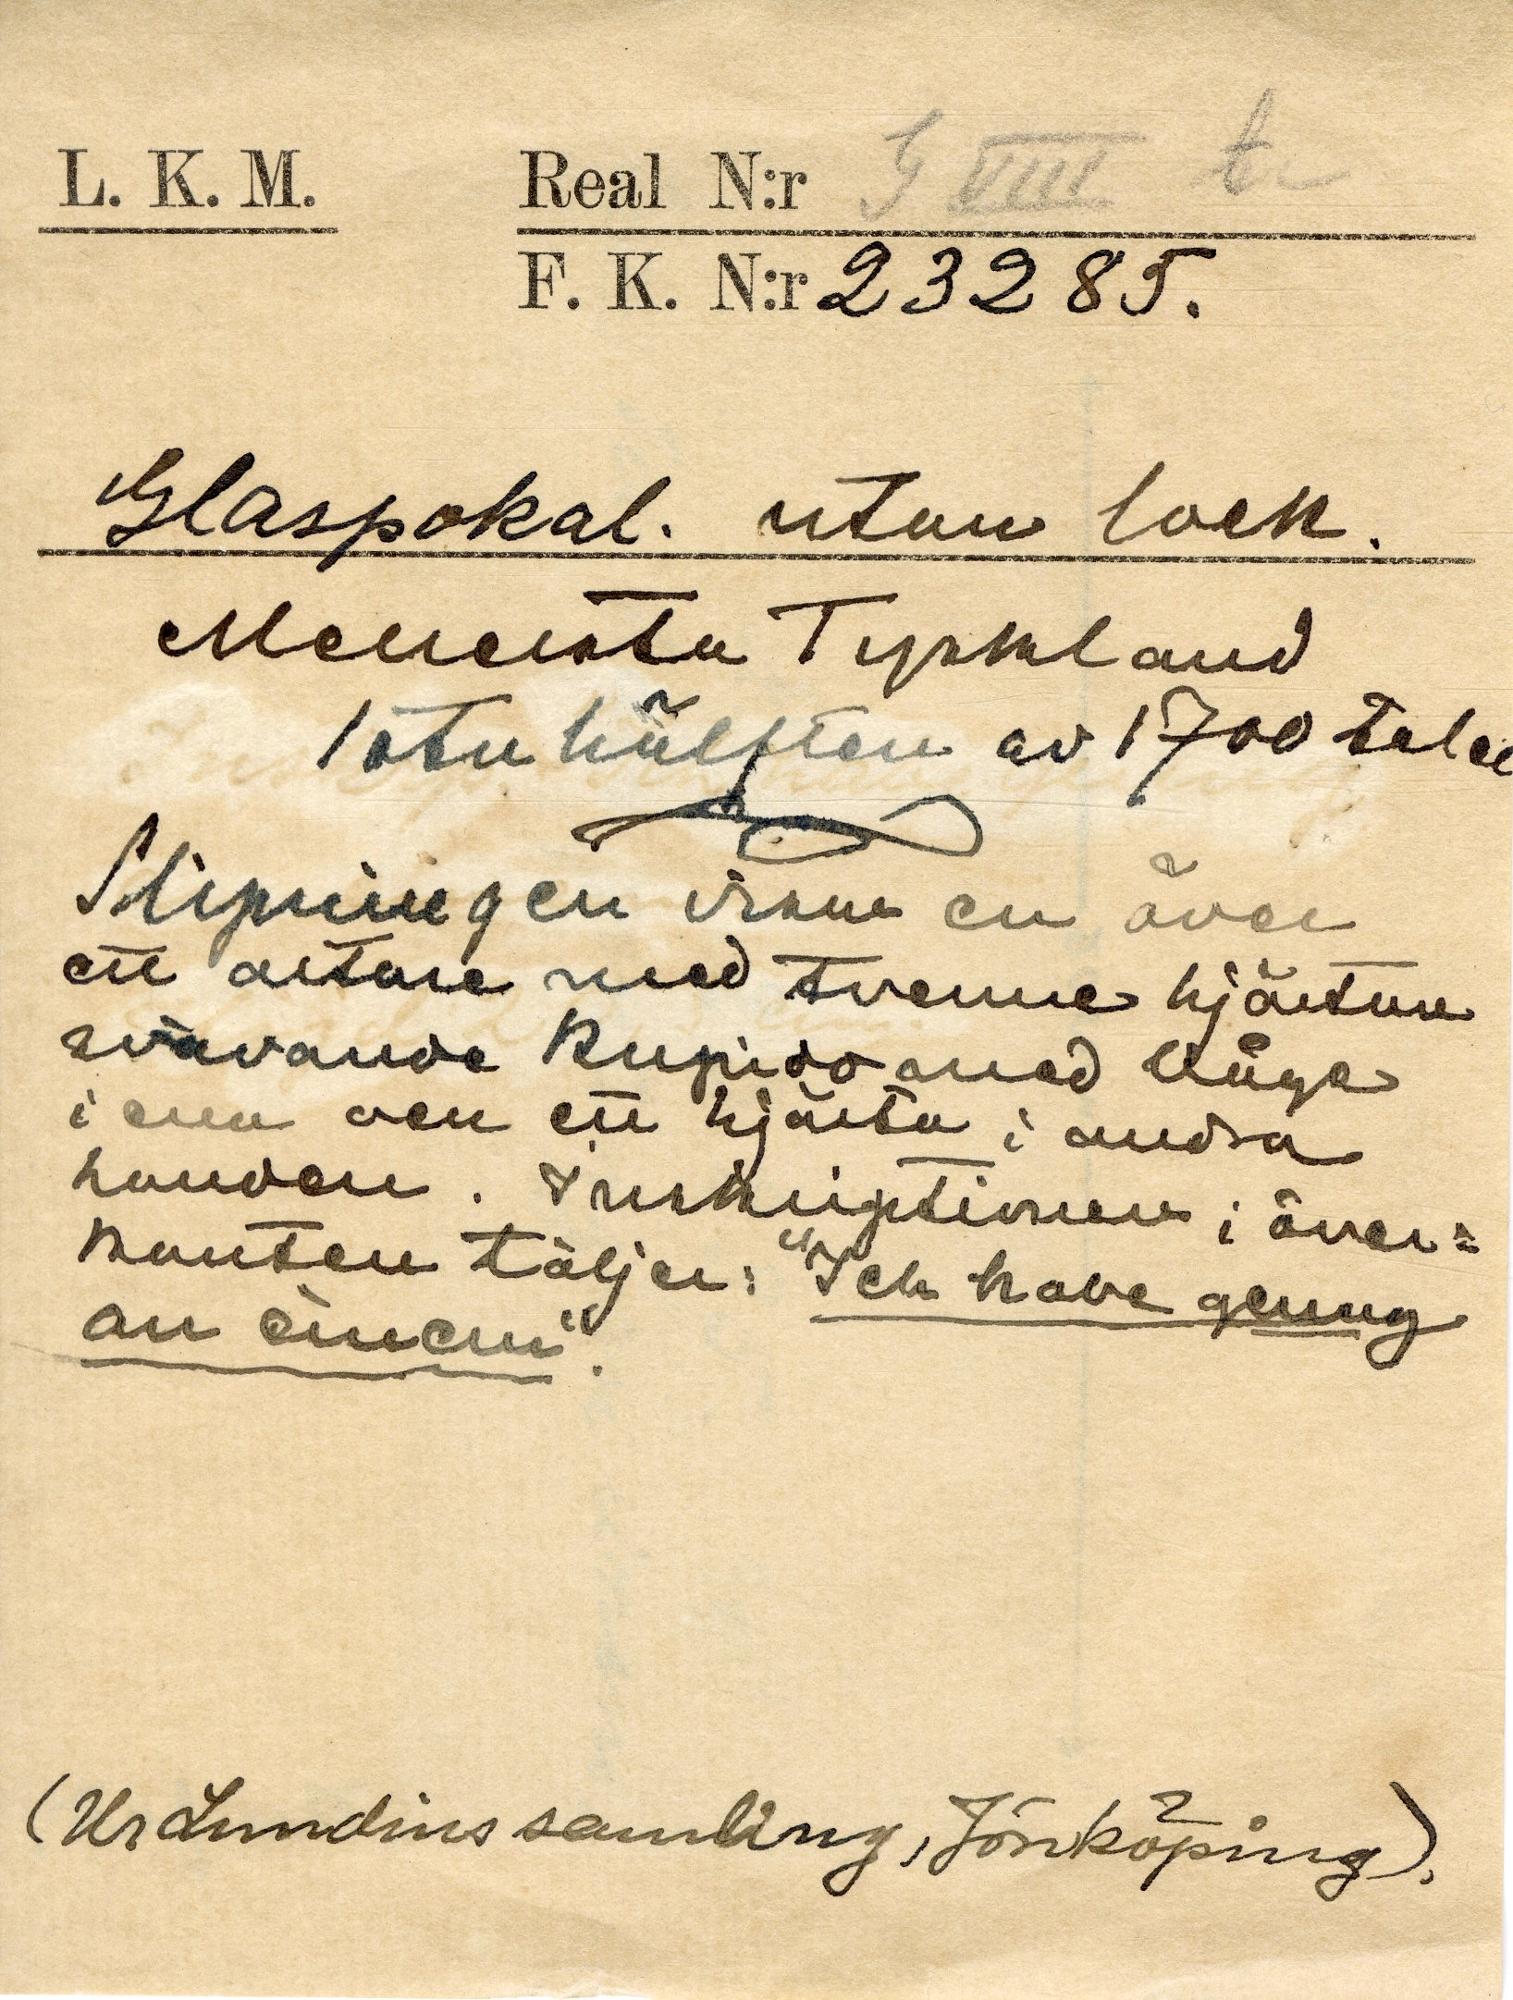 L. K. M.
Real N:r G VIII
F. K. N:r 23285.
Glaspokal. utan lock.
Tyskland
1sta hälften av 1700 talet
Slipningen visar en över
ett altare med tvenne hjärtan
svävande Kupido med båge
i ena och ett hjärta i andra
handen. Inskriptionen i över=
kanten täljer: "Ich habe genug
an einem".
(Ur Lundins samling, Jönköping).